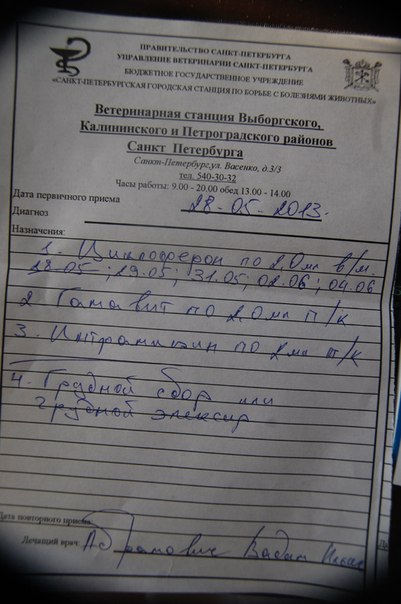 ПРАВИТЕЛЬСТВО САНКТ-ПЕТЕРБУРГА
УПРАВЛЕНИЕ ВЕТЕРИНАРИИ САНКТ-ПЕТЕРБУРГА
БЮДЖЕТНОЕ ГОСУДАРСТВЕННОЕ УЧРЕЖДЕНИЕ
«САНКТ-ПЕТЕРБУРГСКАЯ ГОРОДСКАЯ СТАНЦИЯ ПО БОРЬБЕ С БОЛЕЗНЯМИ ЖИВОТНЫХ»
Ветеринарная станция Выборгского,
Калининского и Петроградского районов
Санкт Петербурга
Санкт-Петербург,ул. Васенко, д.3/3
тел. 540-30-32
Часы работы: 9.00 - 20.00 обед 13.00 - 14.00
Дата первичного приема 28-05-2013.
Диагноз
Назначения:
1- Циклоферон по 2.0 мл в/м.
28.05; 29.05; 31.05; 02.06; 04.06
2. Гамавит по 2.0 мл п/к
3. по 2 мл п/к
4- Грудной сбор или
грудной элексир
Дата повторного приема
Лечащий врач: Абрамович Вадим